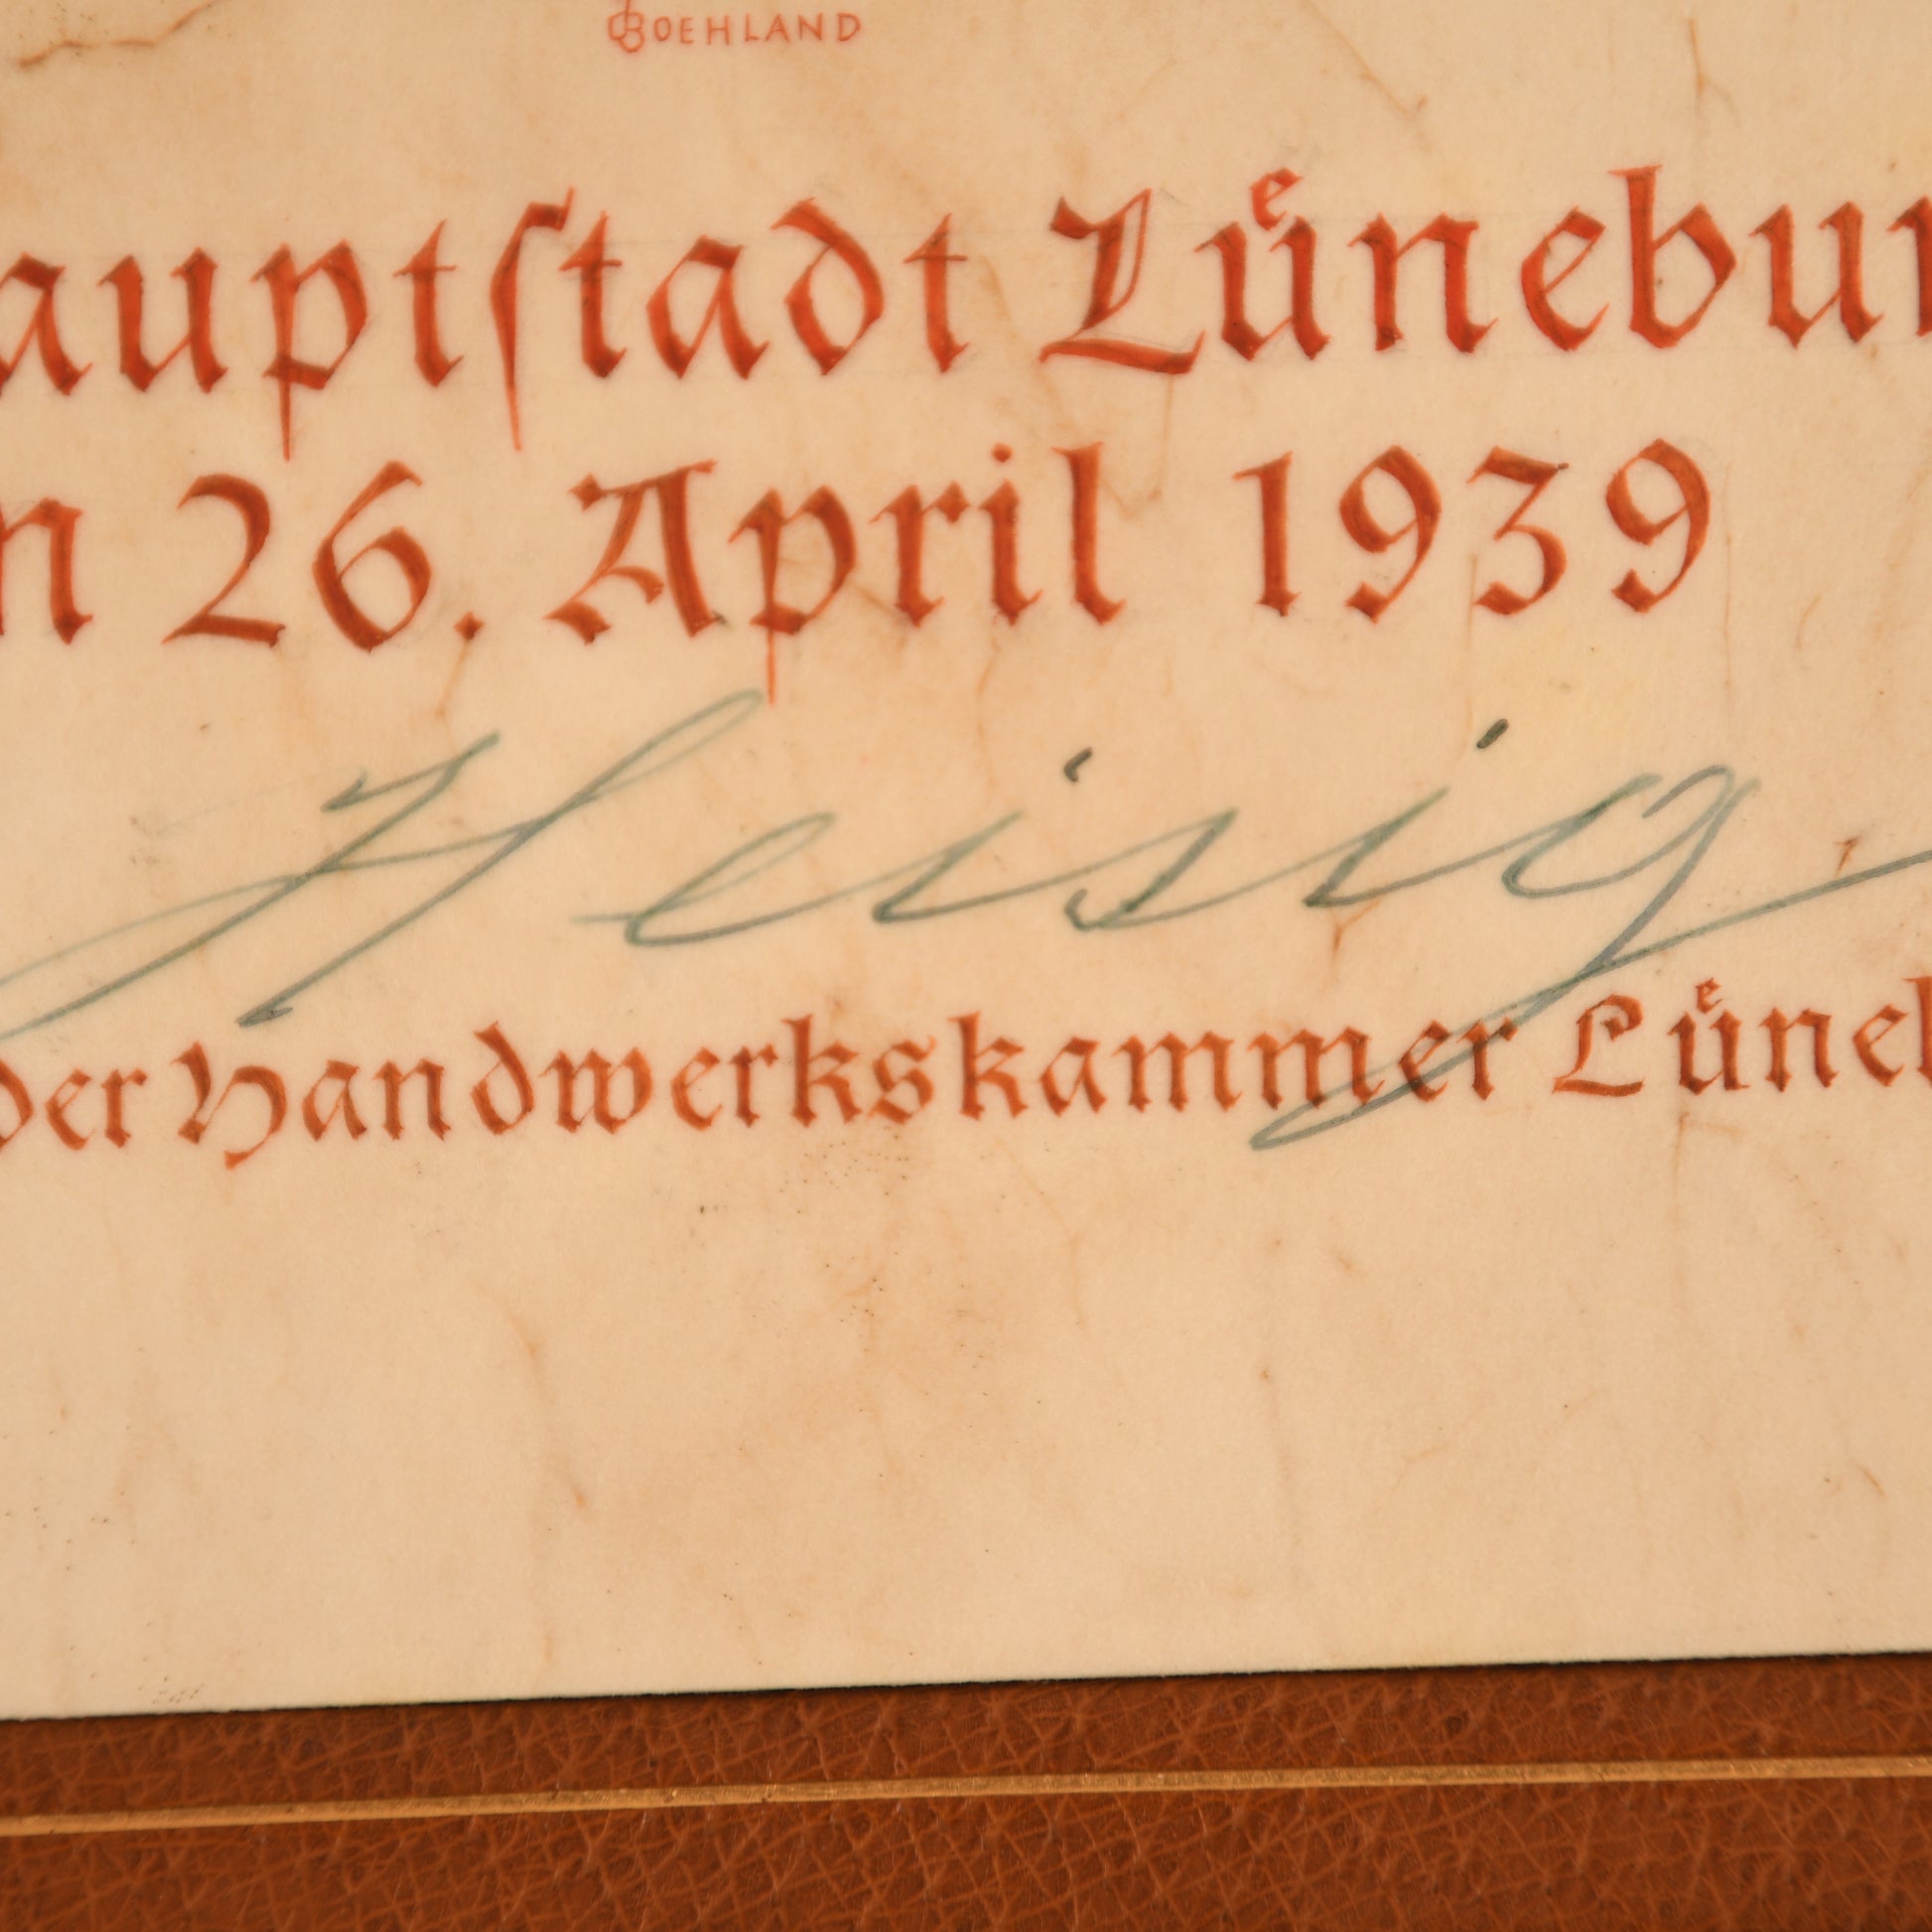 BOEHLAND
auptſtadt Luͤnebur
n 26. April 1939
Heisig
der Handwerkskammer Luͤneb